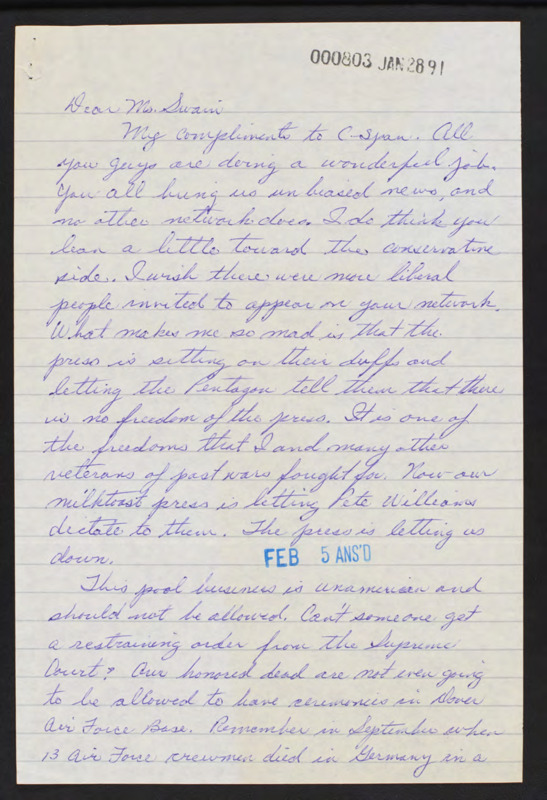 000803 JAN 28 91
Dear Ms. Swain
My compliments to C-Span. All
you guys are doing a wonderful job.
You all bring us unbiased news, and
no other network does. I do think you
lean a little toward the conservative
side. I wish there were more liberal
people invited to appear on your network.
What makes me so mad is that the
press is sitting on their duffs and
letting the Pentagon tell them that there
is no freedom of the press. It is one of
the freedoms that I and many other
veterans of past wars fought for. Now our
milktoast press is letting Pete Williams
dictate to them. The press is letting us
down.
FEB 5 ANS'D
This pool business is unamerican and
should not be allowed. Can't someone get
a restraining order from the Supreme
Court? Our honored dead are not even going
to be allowed to have ceremonies in Dover
Air Force Base. Remember in September when
13 Air Force crewmen died in Germany in a